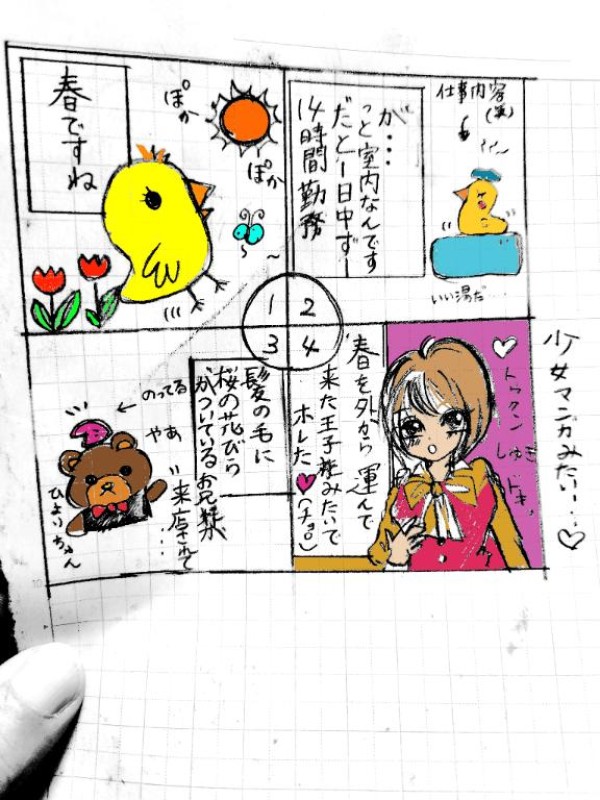 春ですね
ぽか
ぽか
14時間勤務
だと1日中ずー
っと室内なんです
が…
仕事内容
(笑)
いい湯だ…
1
2
3
4
髪の毛に
桜の花びら
がついているお兄様
来店されて…
のってる
やあ
ひよりちゃん
春を外から運んで
来た王子様みたいで
ホレた♥(チョロ)
♡トゥクン
少女マンガみたい…♡